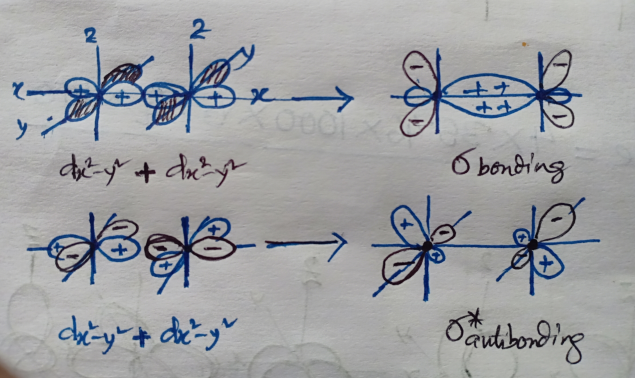 z z
y
x + + + + x + +
+ +
y
dx²-y² + dx²-y² σ bonding
- -
- -
- + + -
+ + - - + - + -
- + - + +
dx²-y² + dx²-y² σ* antibonding